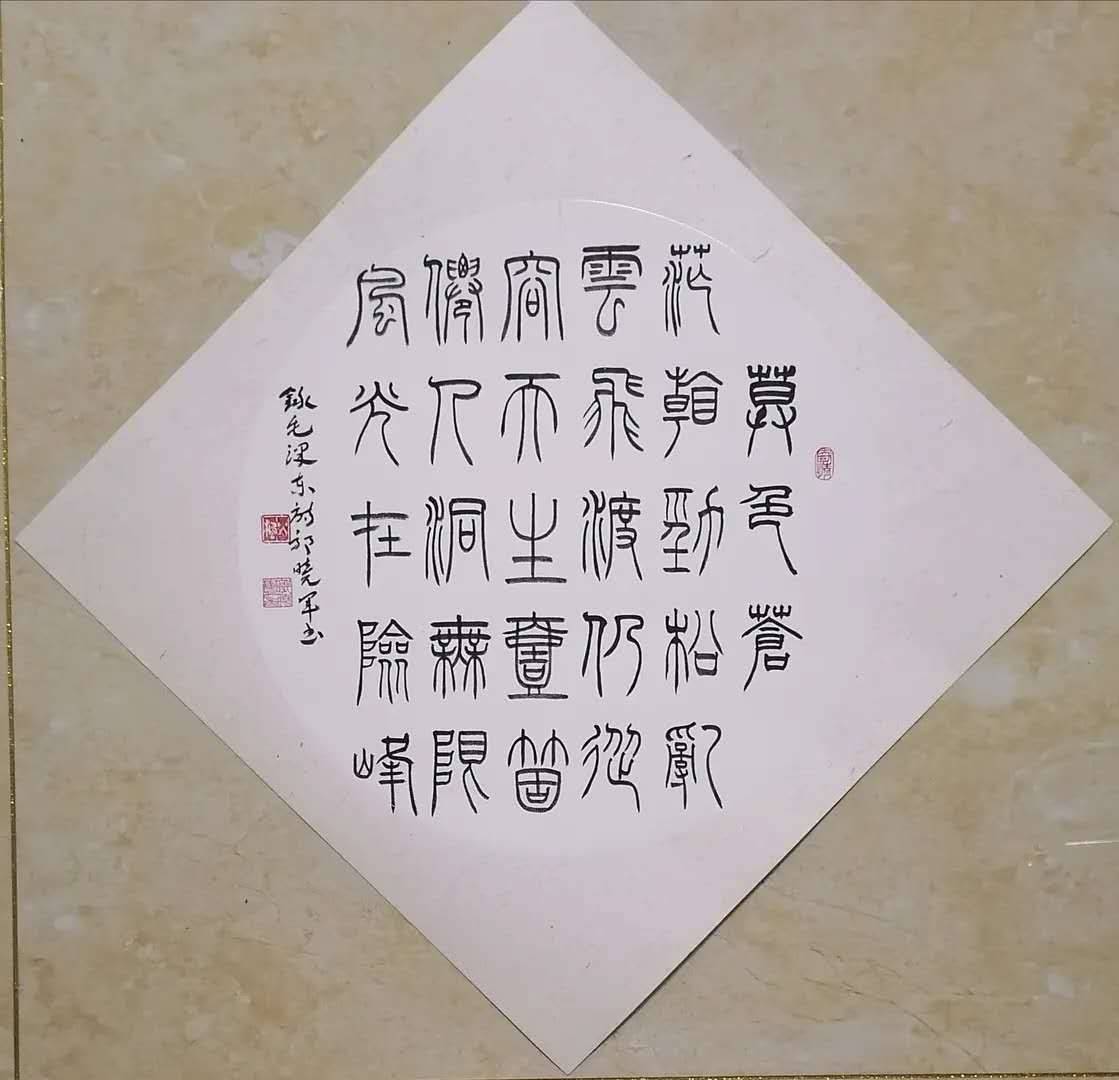 莫色蒼
茫看勁松亂
雲飛渡仍從
容天生壹箇
僊人洞無限
風光在險峰
錄毛澤东詩 曉军书